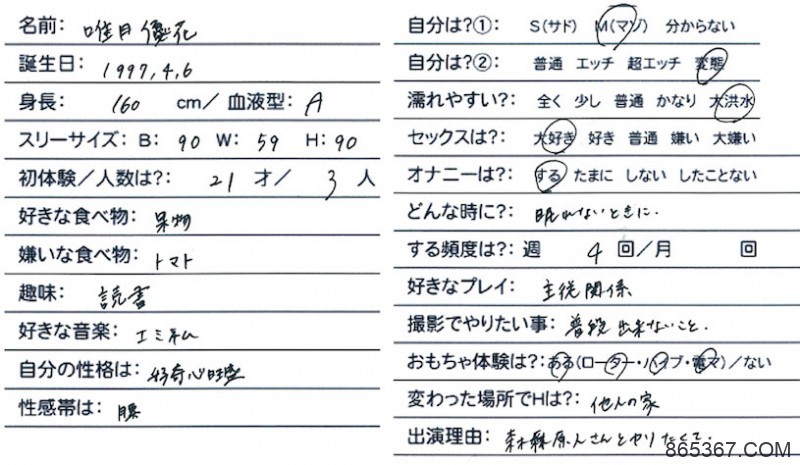 名前: 唯月優花
誕生日: 1997,4,6
身長: 160 cm/ 血液型: A
スリーサイズ: B: 90 W: 59 H: 90
初体験/人数は?: 21 才/ 3 人
好きな食べ物: 果物
嫌いな食べ物: トマト
趣味: 読書
好きな音楽: エミネム
自分の性格は: 好奇心旺盛
性感帯は: 腰
自分は?①: S(サド) M(マゾ) 分からない
自分は?②: 普通 エッチ 超エッチ 変態
濡れやすい?: 全く 少し 普通 かなり 大洪水
セックスは?: 大好き 好き 普通 嫌い 大嫌い
オナニーは?: する たまに しない したことない
どんな時に?: 眠れないときに.
する頻度は?: 週 4 回/月 回
好きなプレイ: 主従関係
撮影でやりたい事: 普段出来ないこと.
おもちゃ体験は?: ある(ローター・バイブ・電マ)/ない
変わった場所でHは?: 他人の家
出演理由: 森林原人さんとやりたくて.
865367.COM